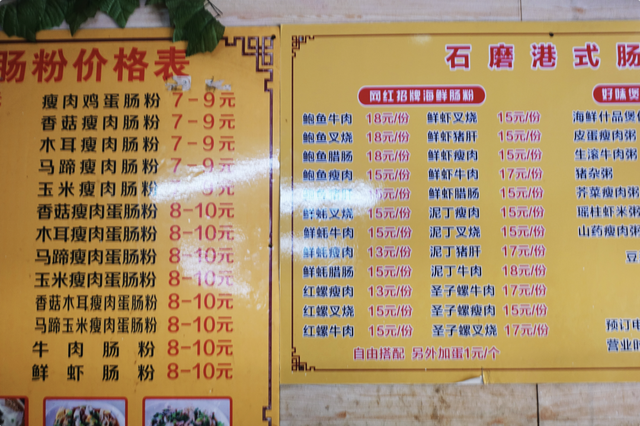 肠粉价格表
瘦肉鸡蛋肠粉 7-9元
香菇瘦肉肠粉 7-9元
木耳瘦肉肠粉 7-9元
马蹄瘦肉肠粉 7-9元
玉米瘦肉肠粉 9元
香菇瘦肉蛋肠粉 8-10元
木耳瘦肉蛋肠粉 8-10元
马蹄瘦肉蛋肠粉 8-10元
玉米瘦肉蛋肠粉 8-10元
香菇木耳瘦肉蛋肠粉 8-10元
马蹄玉米瘦肉蛋肠粉 8-10元
牛肉肠粉 8-10元
鲜虾肠粉 8-10元
石磨港式肠
网红招牌海鲜肠粉
鲍鱼牛肉 18元/份 鲜虾叉烧 15元/份
鲍鱼叉烧 18元/份 鲜虾猪肝 15元/份
鲍鱼腊肠 18元/份 鲜虾瘦肉 15元/份
鲍鱼瘦肉 15元/份 鲜虾牛肉 17元/份
15元/份 鲜虾腊肠 15元/份
鲜蚝叉烧 15元/份 泥丁瘦肉 15元/份
鲜蚝牛肉 15元/份 泥丁叉烧 15元/份
鲜蚝瘦肉 13元/份 泥丁猪肝 17元/份
鲜蚝腊肠 15元/份 泥丁牛肉 18元/份
红螺瘦肉 13元/份 圣子螺牛肉 17元/份
红螺叉烧 15元/份 圣子螺瘦肉 15元/份
红螺牛肉 15元/份 圣子螺叉烧 17元/份
自由搭配 另外加蛋1元/个
好味煲
海鲜什品煲
皮蛋瘦肉粥
生滚牛肉粥
猪杂粥
芥菜瘦肉粥
瑶柱虾米粥
山药瘦肉粥
豆
预订电
营业时